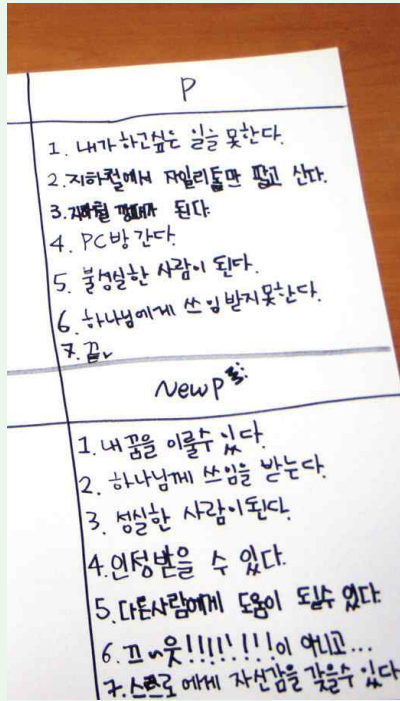 P
1. 내가 하고싶은 일을 못한다.
2. 지하철에서 자일리톨만 팔고 산다.
3. 지하철 깡패가 된다.
4. PC방 간다.
5. 불성실한 사람이 된다.
6. 하나님에게 쓰임 받지못한다.
7. 끝
New P
1. 내 꿈을 이룰수 있다.
2. 하나님께 쓰임을 받는다.
3. 성실한 사람이된다.
4. 인정받을 수 있다.
5. 다른사람에게 도움이 될수 있다.
6. 끄~읏!!!!!!!!이 아니고...
7. 스스로 에게 자신감을 갖을수 있다